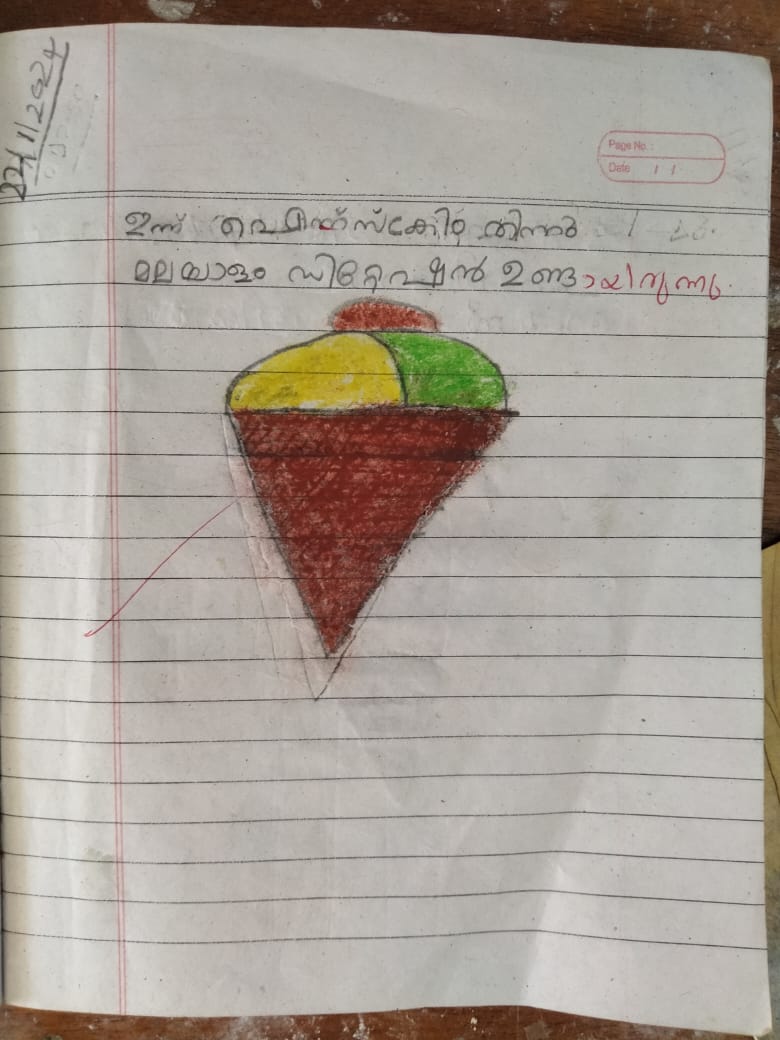 22/11/2024
Page No. :
Date / /
ഇന്ന് തിന്നു
മലയാളം ഡിറ്റേഷൻ ഉണ്ടായിരുന്നു.